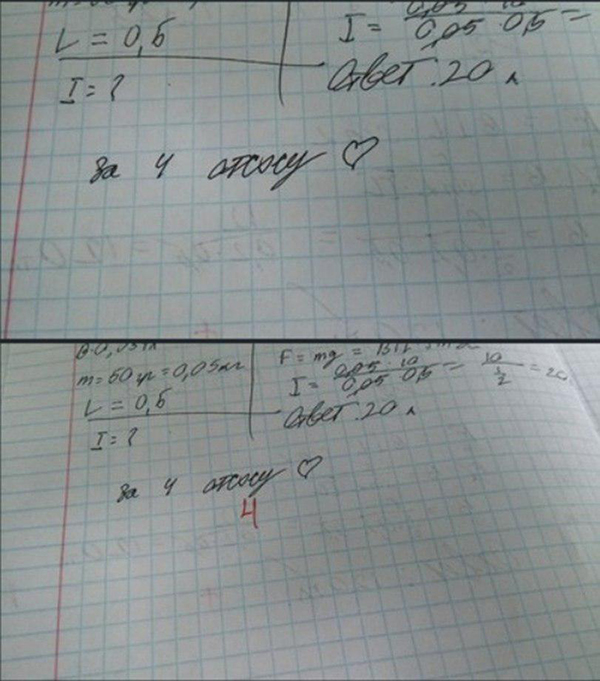 L = 0,5
I = ?
I = 0,05 · 10 / 0,05 · 0,5 =
Ответ: 20 А
за 4 отсосу ♡
m = 50 гр = 0,05 кг
L = 0,5
I = ?
F = mg =
I = 0,05 · 10 / 0,05 · 0,5 = 10 / 1/2 = 20
Ответ: 20 А
за 4 отсосу ♡
4